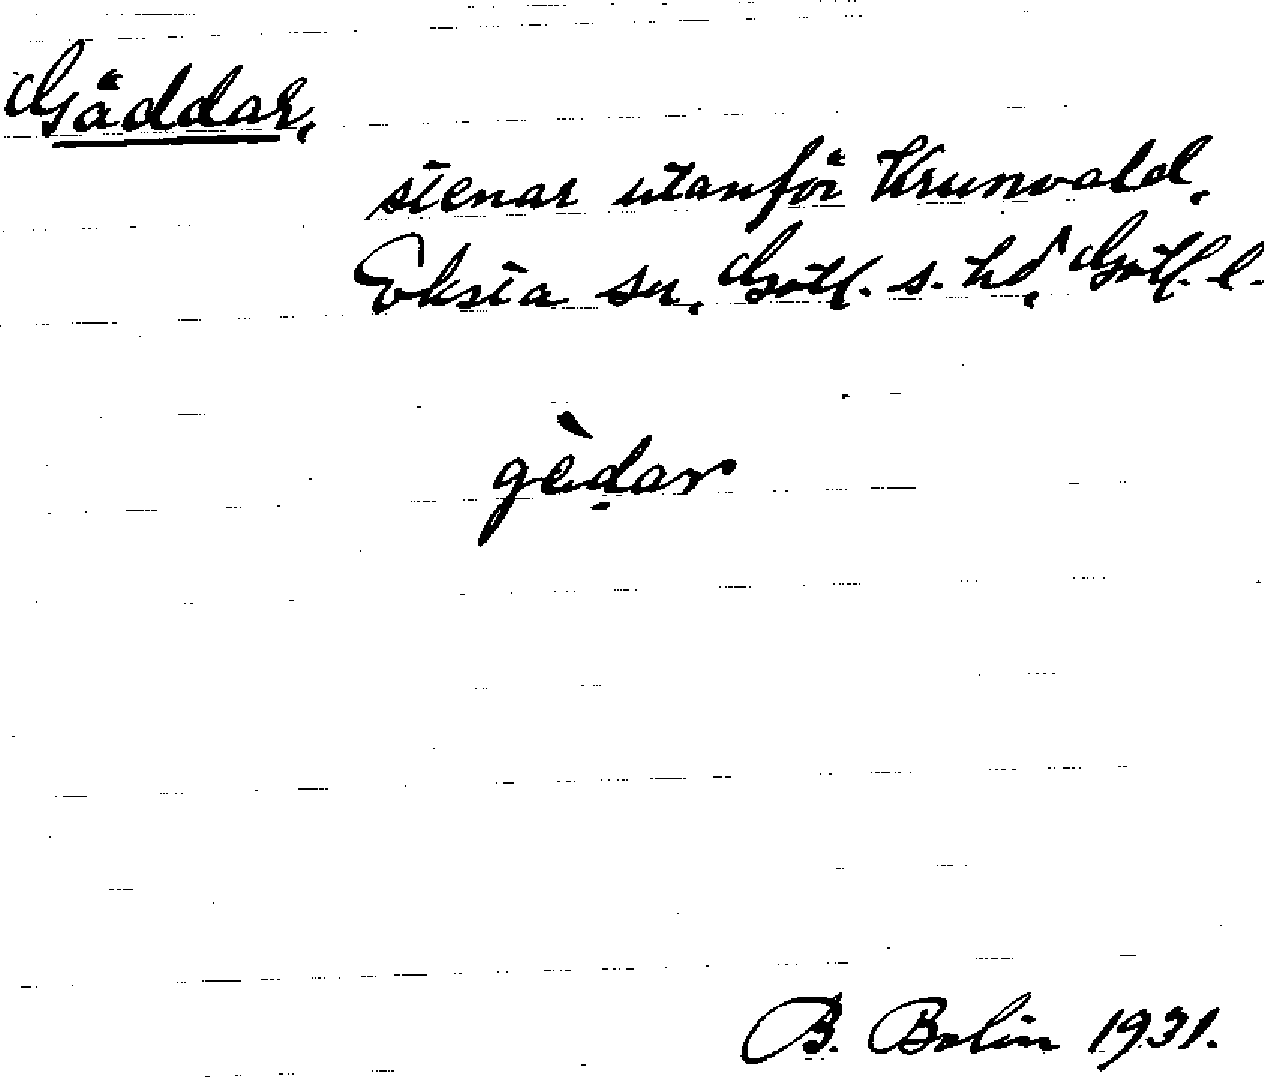 Gäddar,
stenar utanför Krunvald,
Eksta sn, Gotl. s. hd, Gotl. l.
gèdar
B. Bolin 1931.